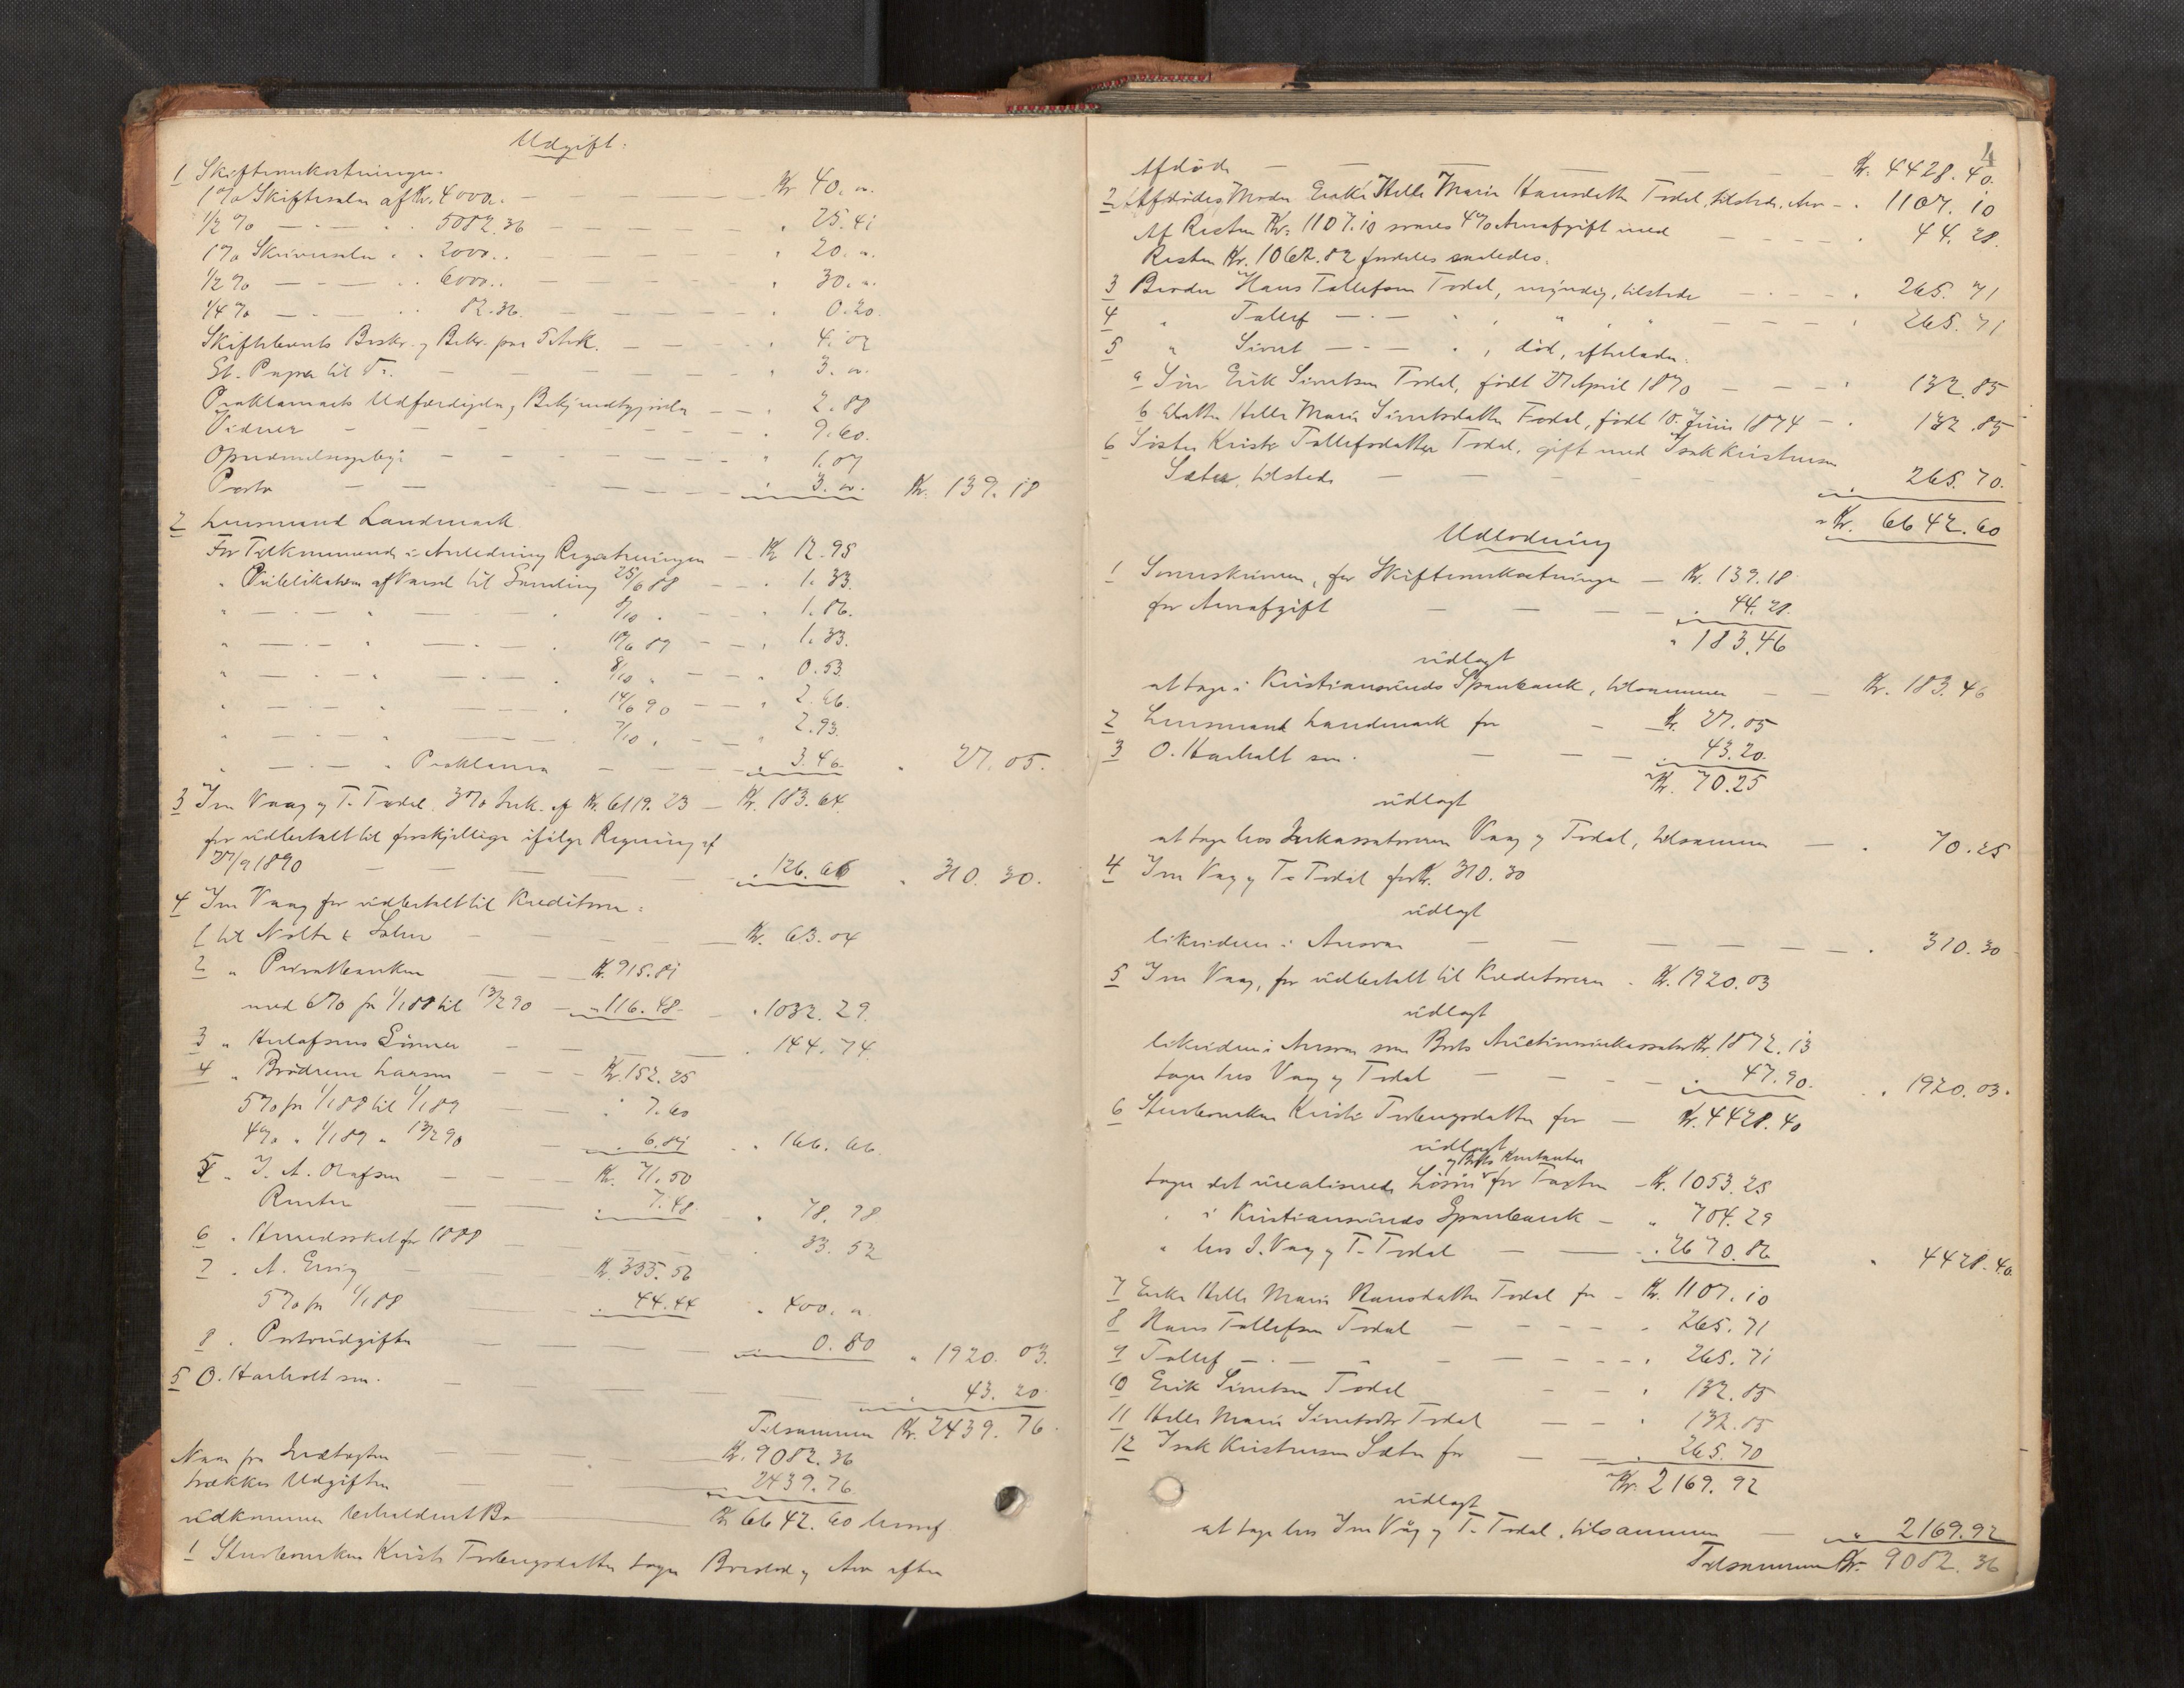 Udgift:
1 Skifteomkostninger.
1% Skiftesalær af Kr. 4000.. — — — Kr 40. „.
1/2 % — . — . . 5082.36 — — — „ 25.41
1% Skriversalær . . 2000.. — — — „ 20. „.
1/2 % — — . . 6000.. — — — „ 30. „.
1/4 % — . — . . 82.36. — — — „ 0.20.
Skiftebrevets Beskr. og Bekr. paa 5 Ark. — — „ 4.02
St. Papir til Do. — — — „ 3. „.
Proklamaets Udfærdigelse og Bekjendtgjørelse — — „ 2.88
Vidner — — — „ 9.60.
Opraabelsesgebyr — — — „ 1.07
Porto — — — „ 3. „. Kr. 139.18
2 Lensmand Landmark
For Tilkommende i Anledning Registreringen — Kr 12.95
„ Publikation af Varsel til Samling 25/6 88 — „ 1.33.
„ — . — „ — . — . 8/10 „ — „ 1.86.
„ — . — „ — . — . 19/6 89 — „ 1.33.
„ — . — „ — . — . 8/10 „ — „ 0.53.
„ — . — „ — . — . 14/6 90 — „ 2.66.
„ — . — „ — . — . 7/10 „ — „ 2.93.
„ — . — „ Proklama — — „ 3.46. „ 27.05.
3 Iver Vaag og T. Todal. 3% Ink. af Kr. 6119.23 — Kr. 183.64
for udbetalt til forskjellige ifølge Regning af
27/9 1890 — — — „ 126.66 „ 310.30.
4 Iver Vaag for udbetalt til Kreditorer:
1 til Nolte & Sohn — — — Kr. 63.04
2 „ Privatbanken — — Kr. 915.81
med 6% fra 1/1 88 til 13/2 90 — „ 116.48 — „ 1032.29.
3 „ Sönner — — — „ 144.74
4 „ Brödrene Larsen — — Kr. 152.25
5% fra 1/1 88 til 1/1 89 — „ 7.60
4% „ 1/1 89 „ 13/2 90 — „ 6.81 „ 166.66.
5 „ J. A. Olafsen — — Kr. 71.50
Renter — — „ 7.48 „ 78.98
6 „ Amtsskat for 1888 — — „ 33.52
7 „ A. — Kr. 355.56
5% fra 1/1 88 — „ 44.44 „ 400. „.
8 „ Portoudgifter — — 0.80 „ 1920.03.
5 O. Harholt sen. — — „ 43.20
Tilsammen Kr. 2439.76.
Naar fra Indtægten — — Kr. 9082.36
trækkes Udgiften — — 2439.76.
udkommer beholdent Bo — — Kr 6642.60 hvoraf
1 Stervboenken Kirsti Torbergsdatter tager Boeslod og Arv efter
4
Afdöde — — — — Kr. 4428.40.
2 Afdödes Moder Enke Helle Marie Hansdatter Todal, tilstede, Arv — . 1107.10
Af Resten Kr. 1107.10 svares 4% Arveafgift med — — . 44.28.
Resten Kr. 1062.82 fordeles saaledes.
3 Broder Hans Tollefsen Todal, myndig, tilstede — . — . 265.71
4 „ Tollef — . — „ , „ , „ — — . 265.71
5 „ Sivert — . — „ , död, efterlader.
a Sön Erik Sivertsen Todal, födt 27 April 1870 — — . 132.85
b Datter Helle Marie Sivertsdatter Todal, födt 10. Juni 1874 — . 132.85
6 Söster Kirsti Tollefsdatter Todal, gift med Isak Kristensen
Sæter, tilstede — — — „ 265.70.
Kr. 6642.60
Udlodning
1 Sorenskriveren, for Skifteomkostninger — Kr. 139.18
for Arveafgift — — — „ 44.28.
„ 183.46
udlagt
at tage i Kristiansunds Sparebank, tilsammen — — Kr. 183.46
2 Lensmand Landmark for — Kr. 27.05
3 O. Harholt sen. — — „ 43.20.
Kr. 70.25
udlagt
at tage hos Inkassatorerne Vaag og Todal, tilsammen — „ 70.25
4 Iver Vaag og T. Todal for Kr. 310.30
udlagt
likviderer i Ansvar — — — — „ 310.30
5 Iver Vaag, for udbetalt til Kreditorerne . Kr. 1920.03
udlagt
likviderer i Ansvar som Boets Auctionsinkassator Kr. 1872.13
tager hos Vaag og Todal — — „ 47.90. „ 1920.03.
6 Stervboenken Kirsti Torbergsdatter for — Kr. 4428.40
udlagt
og Boets Kontanter
tager det urealiserede Lösöre for Taxten — Kr. 1053.25
„ i Kristiansunds Sparebank — „ 704.29
„ hos I. Vaag og T. Todal — — „ 2670.86 „ 4428.40
7 Enke Helle Marie Hansdatter Todal for — Kr. 1107.10
8 Hans Tollefsen Todal — — „ 265.71
9 Tollef — . — — — „ 265.71
10 Erik Sivertsen Todal — — „ 132.85
11 Helle Marie Sivertsdtr Todal — — „ 132.85
12 Isak Kristensen Sæter for — — „ 265.70
Kr. 2169.92
udlagt
at tage hos Iver Våg og T. Todal, tilsammen — „ 2169.92
Tilsammen Kr. 9082.36